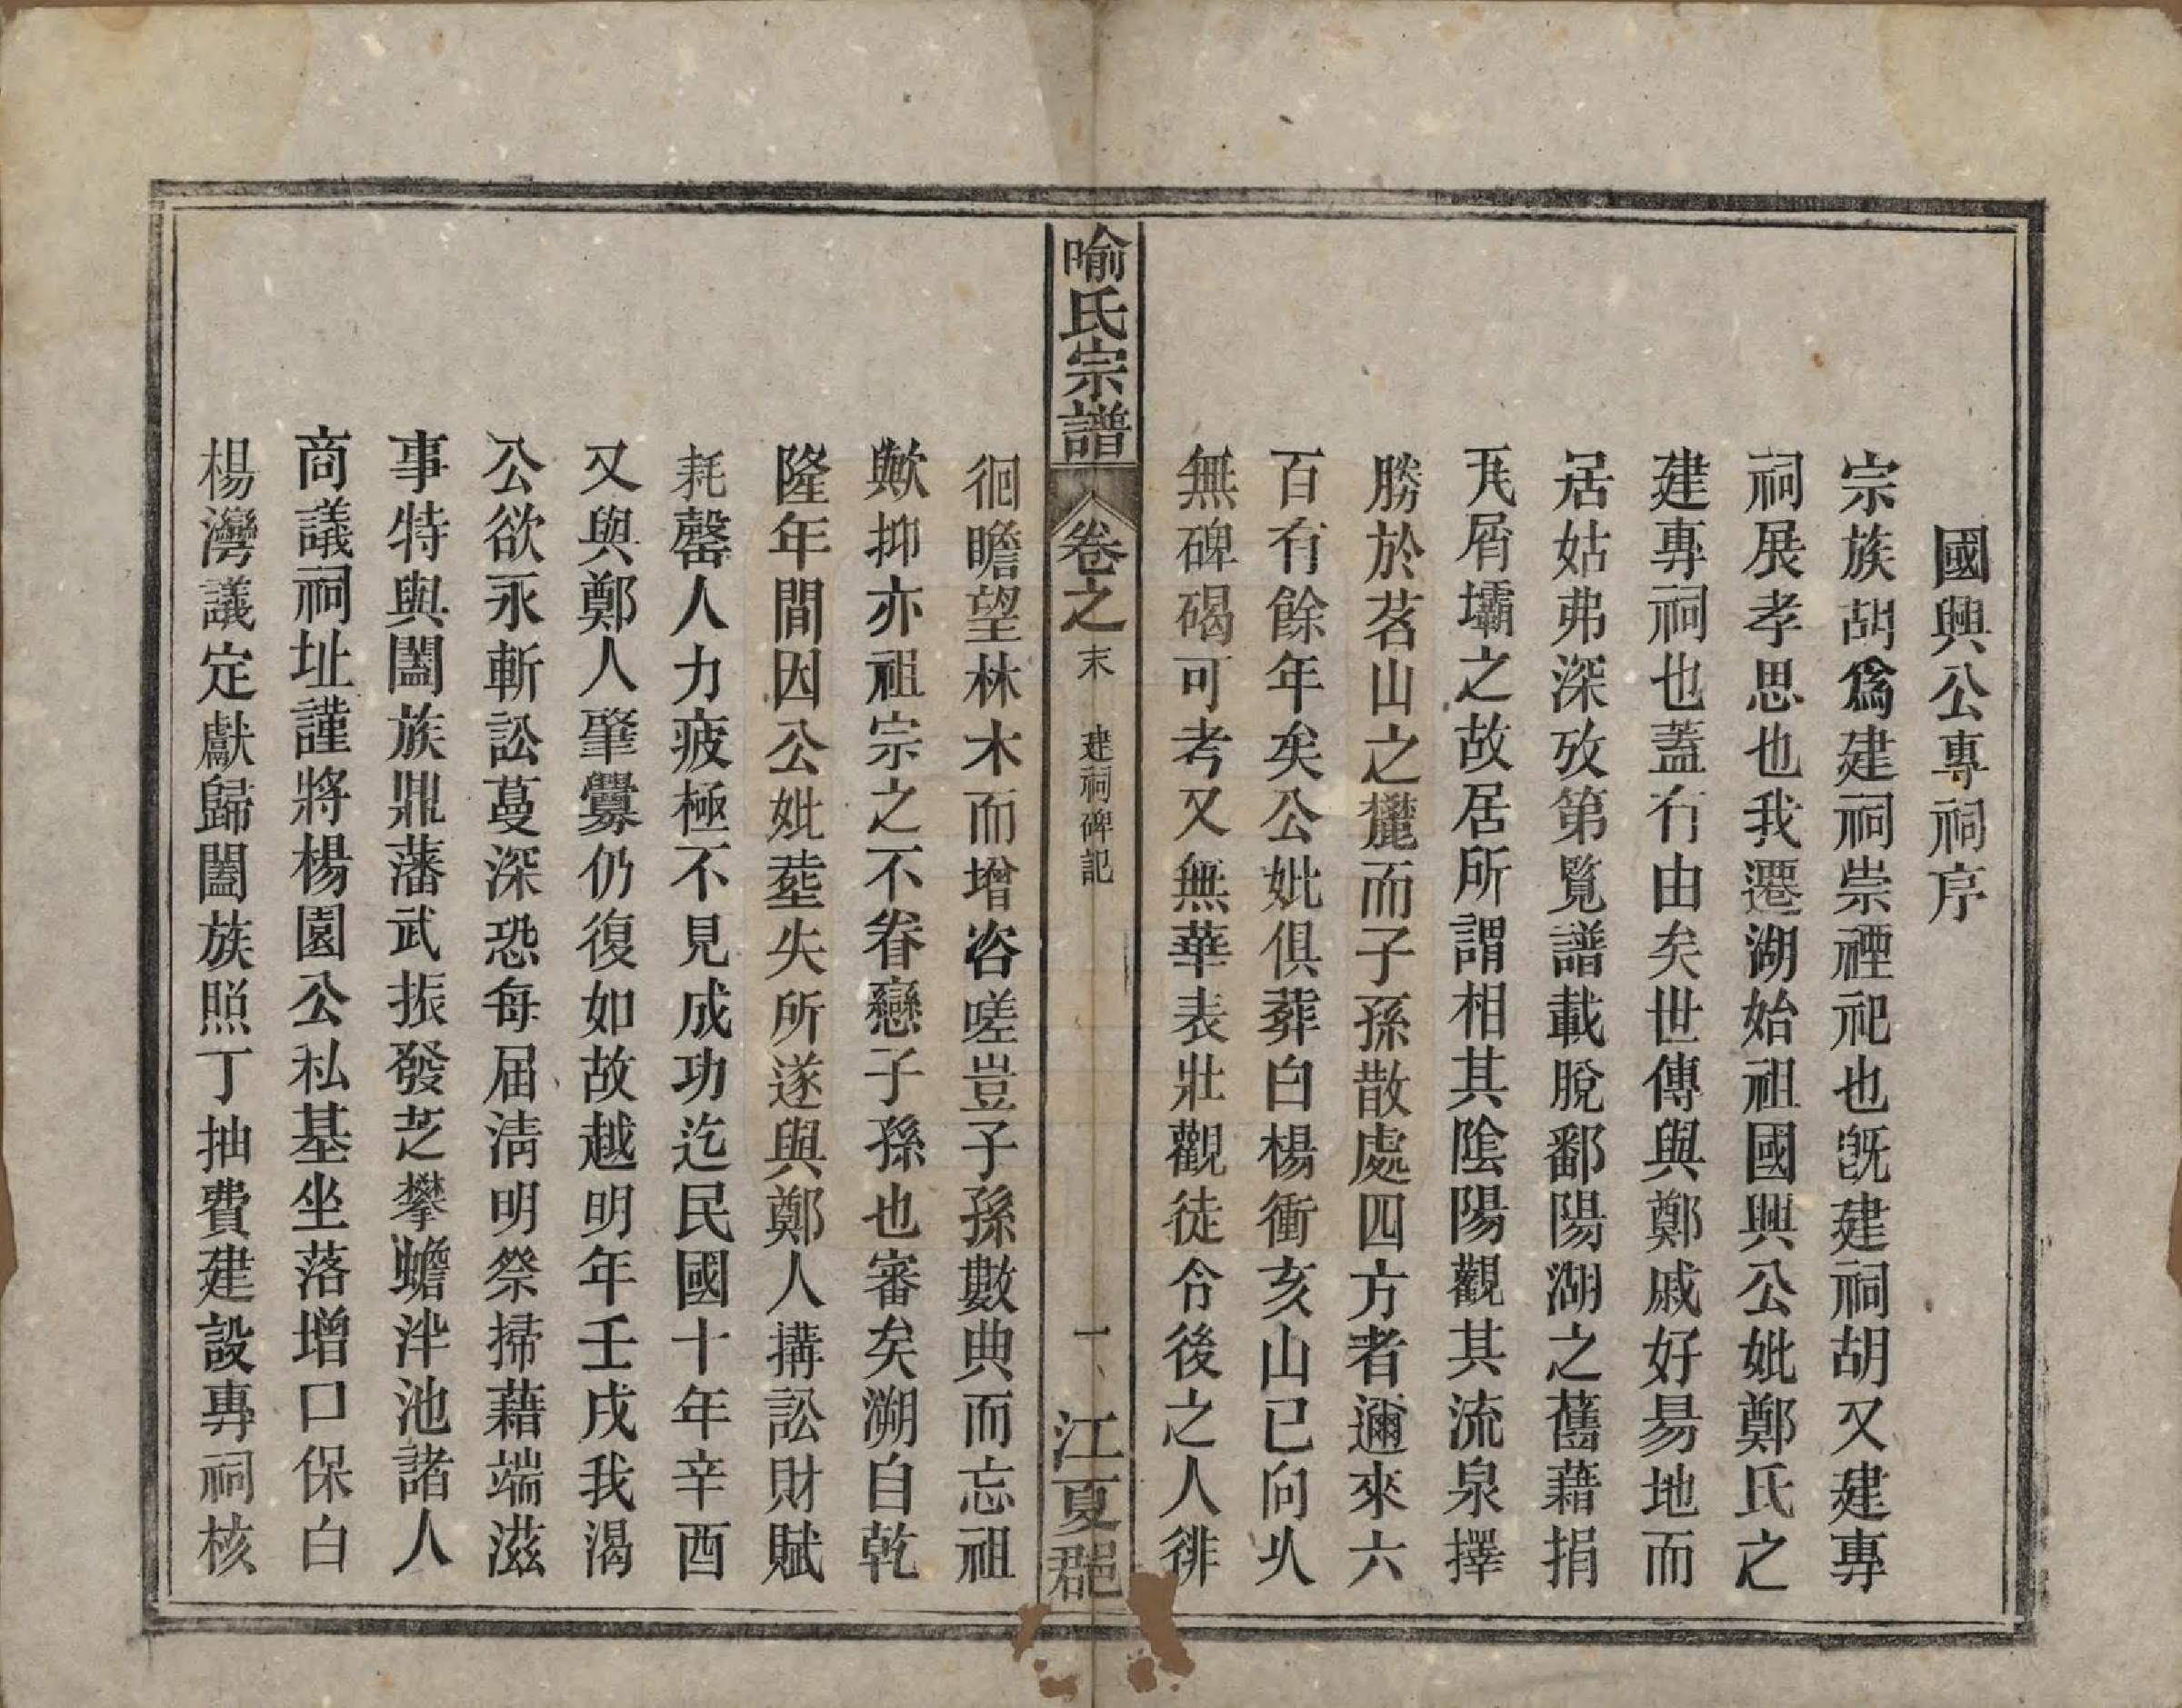 國興公專祠序
宗族胡爲建祠崇禋祀也既建祠胡又建專
祠展孝思也我遷湖始祖國興公妣鄭氏之
建專祠也蓋有由矣世傳與鄭戚好易地而
居姑弗深攷第覽譜載脫鄱陽湖之舊藉捐
瓦屑壩之故居所謂相其陰陽觀其流泉擇
勝於茗山之麓而子孫散處四方者邇來六
百有餘年矣公妣俱葬白楊衝亥山已向久
無碑碣可考又無華表壯觀徒令後之人徘
喻氏宗譜 卷之末 建祠碑記 一 江夏郡
徊瞻望林木而增咨嗟豈子孫數典而忘祖
歟抑亦祖宗之不眷戀子孫也審矣溯自乾
隆年間因公妣塟失所遂與鄭人搆訟財賦
耗罄人力疲極不見成功迄民國十年辛酉
又與鄭人肇釁仍復如故越明年壬戌我渴
公欲永斬訟蔓深恐每届清明祭掃藉端滋
事特與闔族鼎藩武振發芝攀蟾泮池諸人
商議祠址謹將楊園公私基坐落增口保白
楊灣議定獻歸闔族照丁抽費建設專祠核